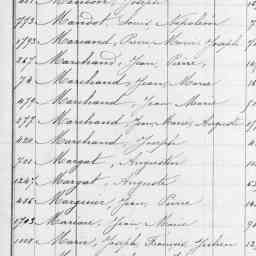 753 Mandot, Louis Napoléon
1793 Marcand, Pierre, Marie, Joseph
267 Marchand, Jean, Pierre,
74 Marchand, Jean, Marie
479 Marchand, Jean Marie
277 Marchand, Jean, Marie, Auguste
420 Marchand, Joseph
701 Margat, Augustin
1247 Margat, Auguste
416 Marguier, Jean, Pierre
1703 Jean, Marie
1118 Marie, Joseph, François, Julien